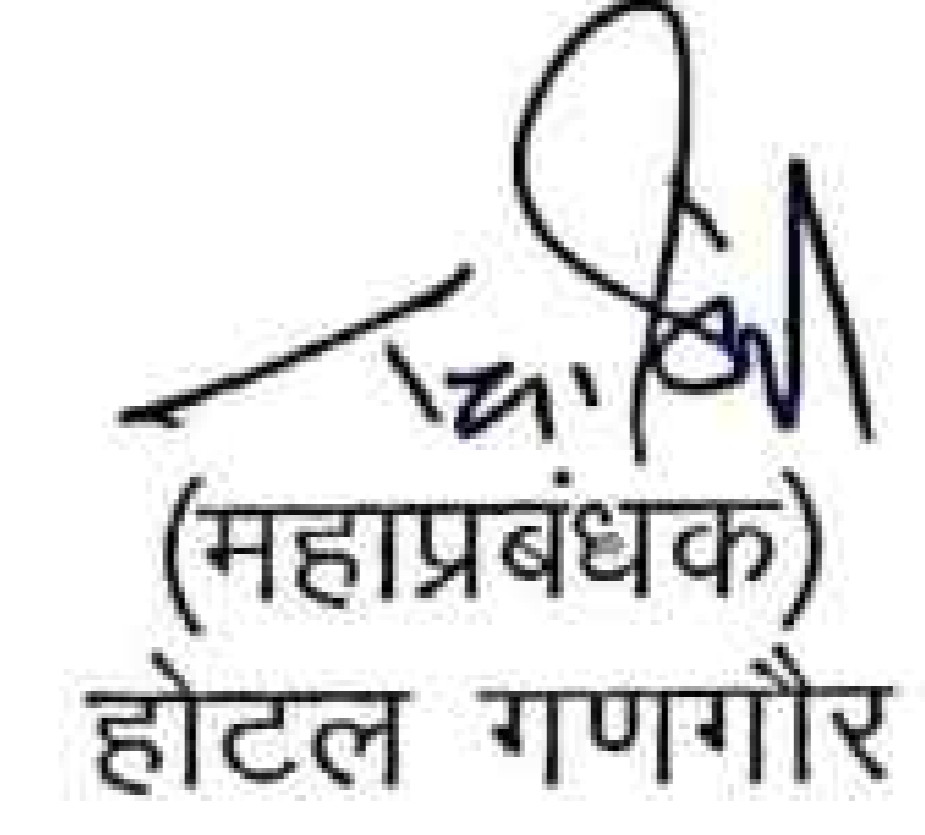 (महाप्रबंधक)
होटल गणगौर